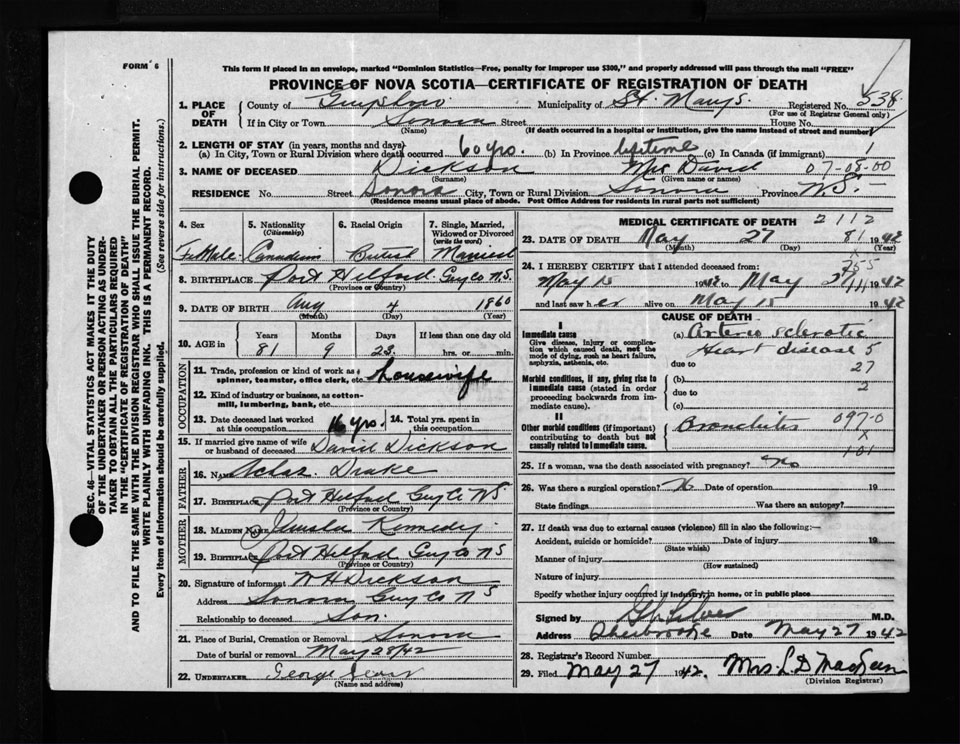 FORM 6
This form if placed in an envelope, marked "Dominion Statistics—Free, penalty for improper use $300," and properly addressed will pass through the mail "FREE"
PROVINCE OF NOVA SCOTIA—CERTIFICATE OF REGISTRATION OF DEATH
1. PLACE OF DEATH
County of Municipality of St. Mary's Registered No. 538
(For use of Registrar General only)
If in City or Town Sonora Street House No.
(Name) (If death occurred in a hospital or institution, give the name instead of street and number)
2. LENGTH OF STAY (in years, months and days)
(a) In City, Town or Rural Division where death occurred 60 yrs. (b) In Province lifetime (c) In Canada (if immigrant) 1
3. NAME OF DECEASED Dickson Mrs David 07-08-00
(Surname) (Given name or names)
RESIDENCE No. Street Sonora City, Town or Rural Division Sonora Province N.S.
(Residence means usual place of abode. Post Office Address for residents in rural parts not sufficient)
SEC. 46—VITAL STATISTICS ACT MAKES IT THE DUTY
OF THE UNDERTAKER OR PERSON ACTING AS UNDER-
TAKER TO OBTAIN ALL THE PARTICULARS REQUIRED
IN THE "CERTIFICATE OF REGISTRATION OF DEATH"
AND TO FILE THE SAME WITH THE DIVISION REGISTRAR WHO SHALL ISSUE THE BURIAL PERMIT.
WRITE PLAINLY WITH UNFADING INK. THIS IS A PERMANENT RECORD.
Every item of information should be carefully supplied. (See reverse side for instructions.)
4. Sex 5. Nationality (Citizenship) 6. Racial Origin 7. Single, Married, Widowed or Divorced (write the word)
Female Canadian British Married
8. BIRTHPLACE Port Hilford Guy Co N.S.
(Province or Country)
9. DATE OF BIRTH Aug 4 1860
(Month) (Day) (Year)
10. AGE in Years Months Days If less than one day old
81 9 23 hrs. or min.
OCCUPATION
11. Trade, profession or kind of work as spinner, teamster, office clerk, etc. housewife
12. Kind of industry or business, as cotton-mill, lumbering, bank, etc.
13. Date deceased last worked at this occupation 16 yrs. 14. Total yrs. spent in this occupation
15. If married give name of wife or husband of deceased David Dickson
FATHER
16. NAME Drake
17. BIRTHPLACE Port Hilford Guy Co N.S.
(Province or Country)
MOTHER
18. MAIDEN NAME Kennedy
19. BIRTHPLACE Port Hilford Guy Co N S
(Province or Country)
20. Signature of informant W H Dickson
Address Sonora Guy Co N S
Relationship to deceased Son
21. Place of Burial, Cremation or Removal Sonora
Date of burial or removal May 28/42
22. UNDERTAKER George
(Name and address)
MEDICAL CERTIFICATE OF DEATH 2112
23. DATE OF DEATH May 27 81 1942
(Month) (Day) (Year)
24. I HEREBY CERTIFY that I attended deceased from:
May 15 1942 to May 1942
and last saw her alive on May 15 1942
CAUSE OF DEATH
I
Immediate cause
Give disease, injury or complication which caused death, not the mode of dying, such as heart failure, asphyxia, asthenia, etc.
(a) Arterio sclerotic
Heart disease 5
due to 27
Morbid conditions, if any, giving rise to immediate cause (stated in order proceeding backwards from immediate cause).
(b)
due to 2
(c)
II
Other morbid conditions (if important) contributing to death but not causally related to immediate cause.
Bronchitis 097-0
X
101
25. If a woman, was the death associated with pregnancy? No
26. Was there a surgical operation? Date of operation 19
State findings Was there an autopsy?
27. If death was due to external causes (violence) fill in also the following:—
Accident, suicide or homicide? Date of injury 19
(State which)
Manner of injury
(How sustained)
Nature of injury
Specify whether injury occurred in industry, in home, or in public place
Signed by M.D.
Address Sherbrooke Date May 27 1942
28. Registrar's Record Number
29. Filed May 27 1942. Mrs. L D
(Division Registrar)